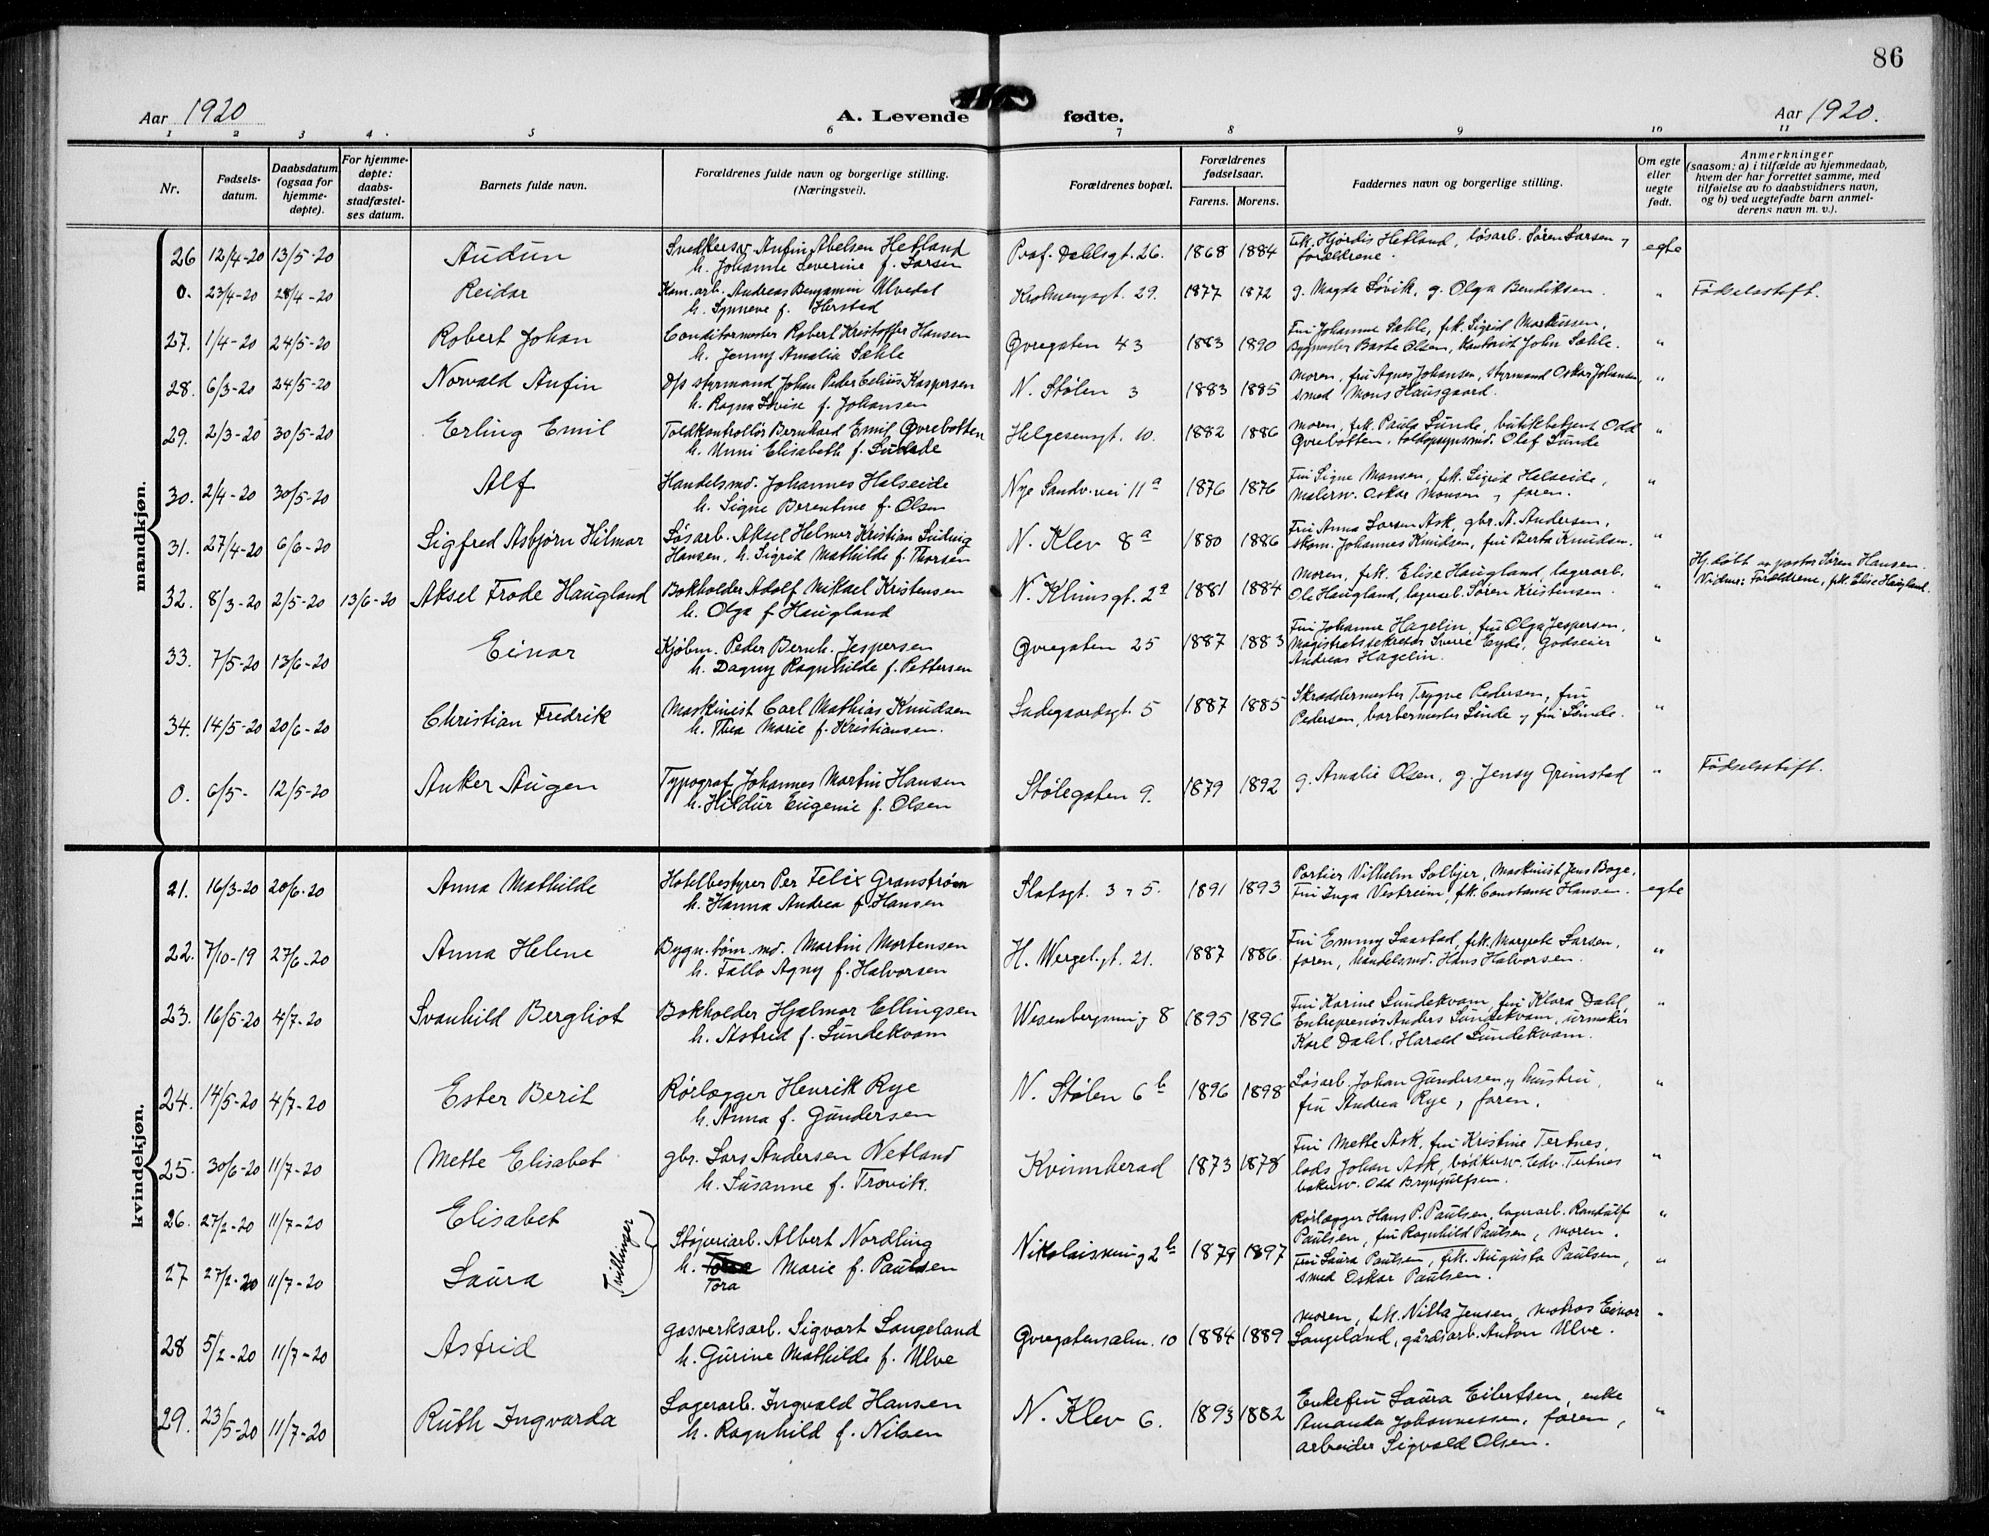 86
Aar 1920
A. Levende fødte.
Aar 1920.
1 2 3 4. 5 6 7 8 9 10 11
Nr.
Fødsels-
datum.
Daabsdatum
(ogsaa for
hjemme-
døpte).
For hjemme-
døpte:
daabs-
stadfæstel-
ses datum.
Barnets fulde navn.
Forældrenes fulde navn og borgerlige stilling.
(Næringsvei).
Forældrenes bopæl.
Forældrenes
fødselsaar.
Farens. Morens.
Faddernes navn og borgerlige stilling.
Om egte
eller
uegte
født.
Anmerkninger
(saasom: a) i tilfælde av hjemmedaab,
hvem der har forrettet samme, med
tilføielse av to daabsvidners navn,
og b) ved uegtefødte barn anmel-
derens navn m. v.).
mandkjøn.
26 12/4-20 13/5-20 Audun
Snedkersv. Anfin Abelsen Hetland
h. Johanne Severine f. Larsen
Prof. Dahlsgt. 26. 1868 1884
Frk. Hjørdis Hetland, løsarb. Søren Larsen,
forældrene.
egte
0. 23/4-20 28/4-20 Reidar
Kom. arb. Andreas Benjamin Ulvedal
h. Synneve f. Herstad
Krohnengsgt. 29. 1877 1872
g. Magda Søvik, g. Olga Bendiksen.
" Fødselsstift.
27. 1/4-20 24/5-20 Robert Johan
Conditormester Robert Kristoffer Hansen
h. Jenny Amalia Sæhle
Øvregaten 43 1883 1890
Fru Johanne Sæhle, frk. Sigrid Markussen,
Bygmester Baste Olsen, Kontorist John Sæhle.
"
28. 6/3-20 24/5-20 Norvald Anfin
D/s styrmand Johan Peder Celius Kaspersen
h. Ragna Lovise f. Johansen
N. Stølen 3 1883 1885
moren, fru Agnes Johansen, styrmand Oskar Johansen,
smed Mons Hausgaard.
"
29. 2/3-20 30/5-20 Erling Emil
Toldkontrollør Bernhard Emil Øvrebotten
h. Unni Elisabeth f. Sunde
Helgesensgt. 10. 1882 1886
moren, frk. Paula Sunde, butikbetjent Odd
Øvrebotten, toldopsynsmd. Olaf Sunde
"
30. 2/4-20 30/5-20 Alf
Handelsmd. Johannes Halseide
h. Signe Berentine f. Olsen
Nye Sandv. vei 11a 1876 1876
Fru Signe Monsen, frk. Sigrid Halseide,
Malersv. Oskar Monsen, faren.
"
31. 27/4-20 6/6-20 Sigfred Asbjørn Hilmar
Løsarb. Aksel Helmer Kristian Ludvig
Hansen, h. Sigrid Mathilde f. Thorsen
N. Klev 8a 1880 1886
Fru Anna Larsen Ask, gbr. A. Andersen,
skom. Johannes Knudsen, fru Berta Knudsen.
"
32. 8/3-20 2/5-20 13/6-20 Aksel Frode Haugland
Bokholder Adolf Mikael Kristensen
h. Olga f. Haugland
N. Klinisgt. 2a 1881 1884
Moren, frk. Elise Haugland, lagerarb.
Ole Haugland, lagerarb. Søren Kristensen.
"
Hj. døbt av pastor Søren Hansen.
Vidner: Forældrene, frk. Elise Haugland.
33. 7/5-20 13/6-20 Einar
Kjøbm. Peder Bernh. Jespersen
h. Dagny Ragnhilde f. Pettersen
Øvregaten 25 1887 1883
Fru Johanne Hagelin, fru Olga Jespersen,
Magistratssekretær Sverre Eyde, Godseier
Andreas Hagelin.
"
34. 14/5-20 20/6-20 Christian Fredrik
Maskinist Carl Mathias Knudsen
h. Thea Marie f. Kristiansen.
Ladegaardsgt. 5 1887 1885
Skræddermester Trygve Pedersen, fru
Pedersen, barbermester Sunde og fru Sunde.
"
0. 6/5- 12/5-20 Anker Augen
Typograf Johannes Martin Hansen
h. Hildur Eugenie f. Olsen
Stølegaten 9. 1879 1892
g. Amalie Olsen, g. Jensy Grimstad
" Fødselsstift.
kvindekjøn.
21. 16/3-20 20/6-20 Anna Mathilde
Hotelbestyrer Per Felix Granstrøm
h. Hanna Andrea f. Hansen
Slotsgt. 3 & 5. 1891 1893
Portier Vilhelm Solbjer, Maskinist Jens Bage,
Fru Inga Vestreim, frk. Constanse Hansen.
egte
22. 7/10-19 27/6-20 Anna Helene
Bygn. tøm. md. Martin Mortensen
h. Fallo Agny f. Halvorsen
H. Wergel.gt. 21. 1887 1886.
Fru Emmy Saastad, frk. Margrete Larsen,
faren, handelsmd. Hans Halvorsen.
"
23. 16/5-20 4/7-20 Svanhild Bergliot
Bokholder Hjalmar Ellingsen
h. Astrid f. Sundekvam
Wesenbergsmug 8 1895 1896
Fru Karine Sundekvam, fru Klara Dahl,
Entreprenør Anders Sundekvam, urmaker
Karl Dahl, Harald Sundekvam.
"
24. 14/5-20 4/7-20 Ester Berit
Rørlægger Henrik Rye
h. Anna f. Gundersen
N. Stølen 6b 1896 1898
Løsarb. Johan Gundersen og hustru,
fru Andrea Rye, faren.
"
25. 30/6-20 11/7-20 Mette Elisabet
gbr. Lars Andersen Netland
h. Susanne f. Trovik.
Kvinnherad 1873 1878
Fru Mette Ask, fru Kristine Tertnes,
lods Johan Ask, bødkersv. Edv. Tertnes
bakersv. Odd Brynjulfsen.
"
26. 27/2-20 11/7-20 Elisabet
27 27/2-20 11/7-20 Laura
Tvillinger
Støperiarb. Albert Nordling
h. Tora Marie f. Paulsen
Tora
Nikolaismug 2b 1879 1897
Rørlægger Hans P. Paulsen, lagerarb. Randulf
Paulsen, fru Ragnhild Paulsen, moren.
"
Fru Laura Paulsen, frk. Augusta Paulsen,
smed Oskar Paulsen.
"
28 5/2-20 11/7-20 Astrid
gasverksarb. Sigvart Langeland
h. Gurine Mathilde f. Ulve
Øvregatensalm. 10 1884 1889
moren, frk. Nilla Jensen, matros Einar
Langeland, gårdsarb. Anton Ulve.
"
29. 23/5-20 11/7-20 Ruth Ingvarda
Lagerarb. Ingvald Hansen
h. Ragnhild f. Nilsen
N. Klev 6. 1893 1882
Enkefru Laura Eilertsen, enke
Amanda Johannessen, faren,
arbeider Sigvald Olsen.
"